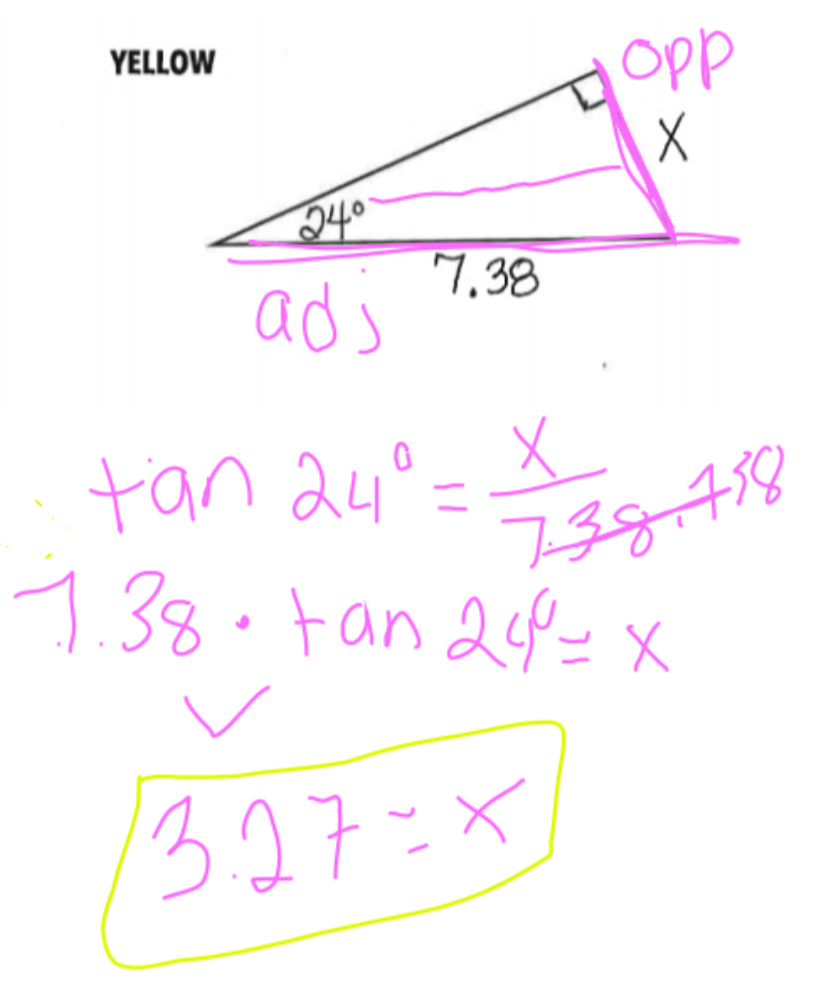 YELLOW
opp
x
24°
7.38
adj
tan 24° = x / 7.38 . 7.38
7.38 · tan 24° = x
3.27 = x